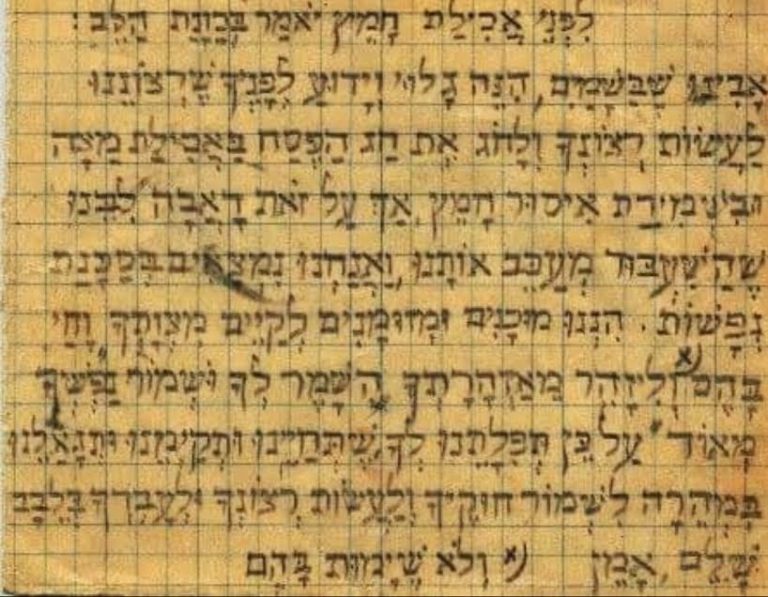 לִפְנֵי אֲכִילַת חָמֵץ יֹאמַר בְּכַוָּנַת הַלֵּב :
אָבִינוּ שֶׁבַּשָּׁמַיִם, הִנֵּה גָלוּי וְיָדוּעַ לְפָנֶיךָ שֶׁרְצוֹנֵנוּ
לַעֲשׂוֹת רְצוֹנְךָ וְלָחֹג אֶת חַג הַפֶּסַח בַּאֲכִילַת מַצָּה
וּבִשְׁמִירַת אִיסוּר חָמֵץ, אַךְ עַל זֹאת דָאֲבָה לִבֵּנוּ
שֶׁהַשִּׁעְבּוּד מְעַכֵּב אוֹתָנוּ, וַאֲנַחְנוּ נִמְצָאִים בְּסַכָּנַת
נְפָשׁוֹת. הִנְנוּ מוּכָנִים וּמְזוּמָּנִים לְקַיֵּים מִצְוָתְךָ, וָחַי
בָּהֶם א) וְלִיזָהֵר מֵאַזְהָרָתְךָ הִשָּׁמֶר לְךָ וּשְׁמוֹר נַפְשְׁךָ
מְאוֹד" עַל כֵּן תְּפִלָּתֵנוּ לְךָ, שֶׁתְּחַיֵּינוּ וּתְקַיְּמֵנוּ וְתִגְאָלֵנוּ
בִּמְהֵרָה לִשְׁמוֹר חוּקֶּיךָ וְלַעֲשׂוֹת רְצוֹנְךָ וּלְעָבְדְךָ בְּלֵבָב
שָׁלֵם, אָמֵן א) וְלֹא שֶׁיָּמוּת בָּהֶם